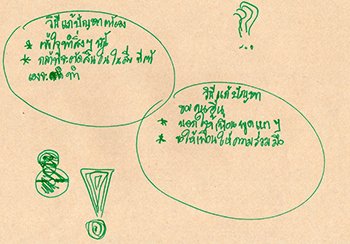 วิธีแก้ปัญหาตัวเอง
* เข้าใจทำสิ่งๆ นั้น
* กล้าที่จะตัดสินใจในสิ่งที่
เองจะทำ
วิธีแก้ปัญหา
ของคนอื่น
* บอกให้เพื่อนพูดเบาๆ
* ทำให้เพื่อนให้ความร่วมมือ